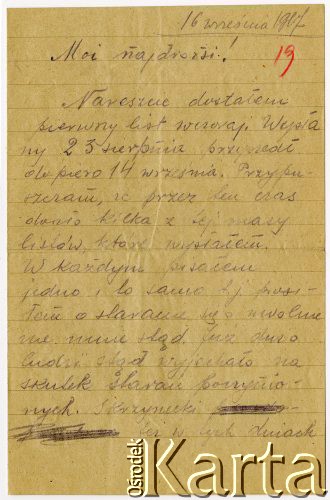 16 września 1947
Moi najdrożsi!
19
Nareszcie dostałem
pierwszy list wczoraj. Wysła
ny 23 sierpnia przyszedł
dopiero 14 września. Przypu-
szczam, że przez ten czas
doszło kilka z tej masy
listów, które wysłałem.
W każdym pisałem
jedno i to samo tj. prosi-
łem o staranie się o zwolnie
nie mnie stąd. Już dużo
ludzi stąd wyjechało na
skutek starań
Skrzynecki
też w tych dniach
Ośrodek
Karta